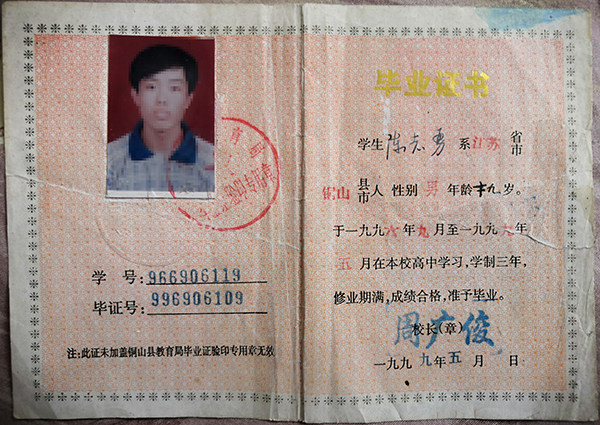 学号:966906119
毕证号:996906109
注:此证未加盖铜山县教育局毕业证验印专用章无效
毕业证书
学生 陈志勇 系 江苏 省市
铜山 县市人 性别 男 年龄 十九 岁。
于一九九六年九月至一九九九年
五月在本校高中学习,学制三年,
修业期满,成绩合格,准予毕业。
校长(章)
周广俊
一九九九年五月 日